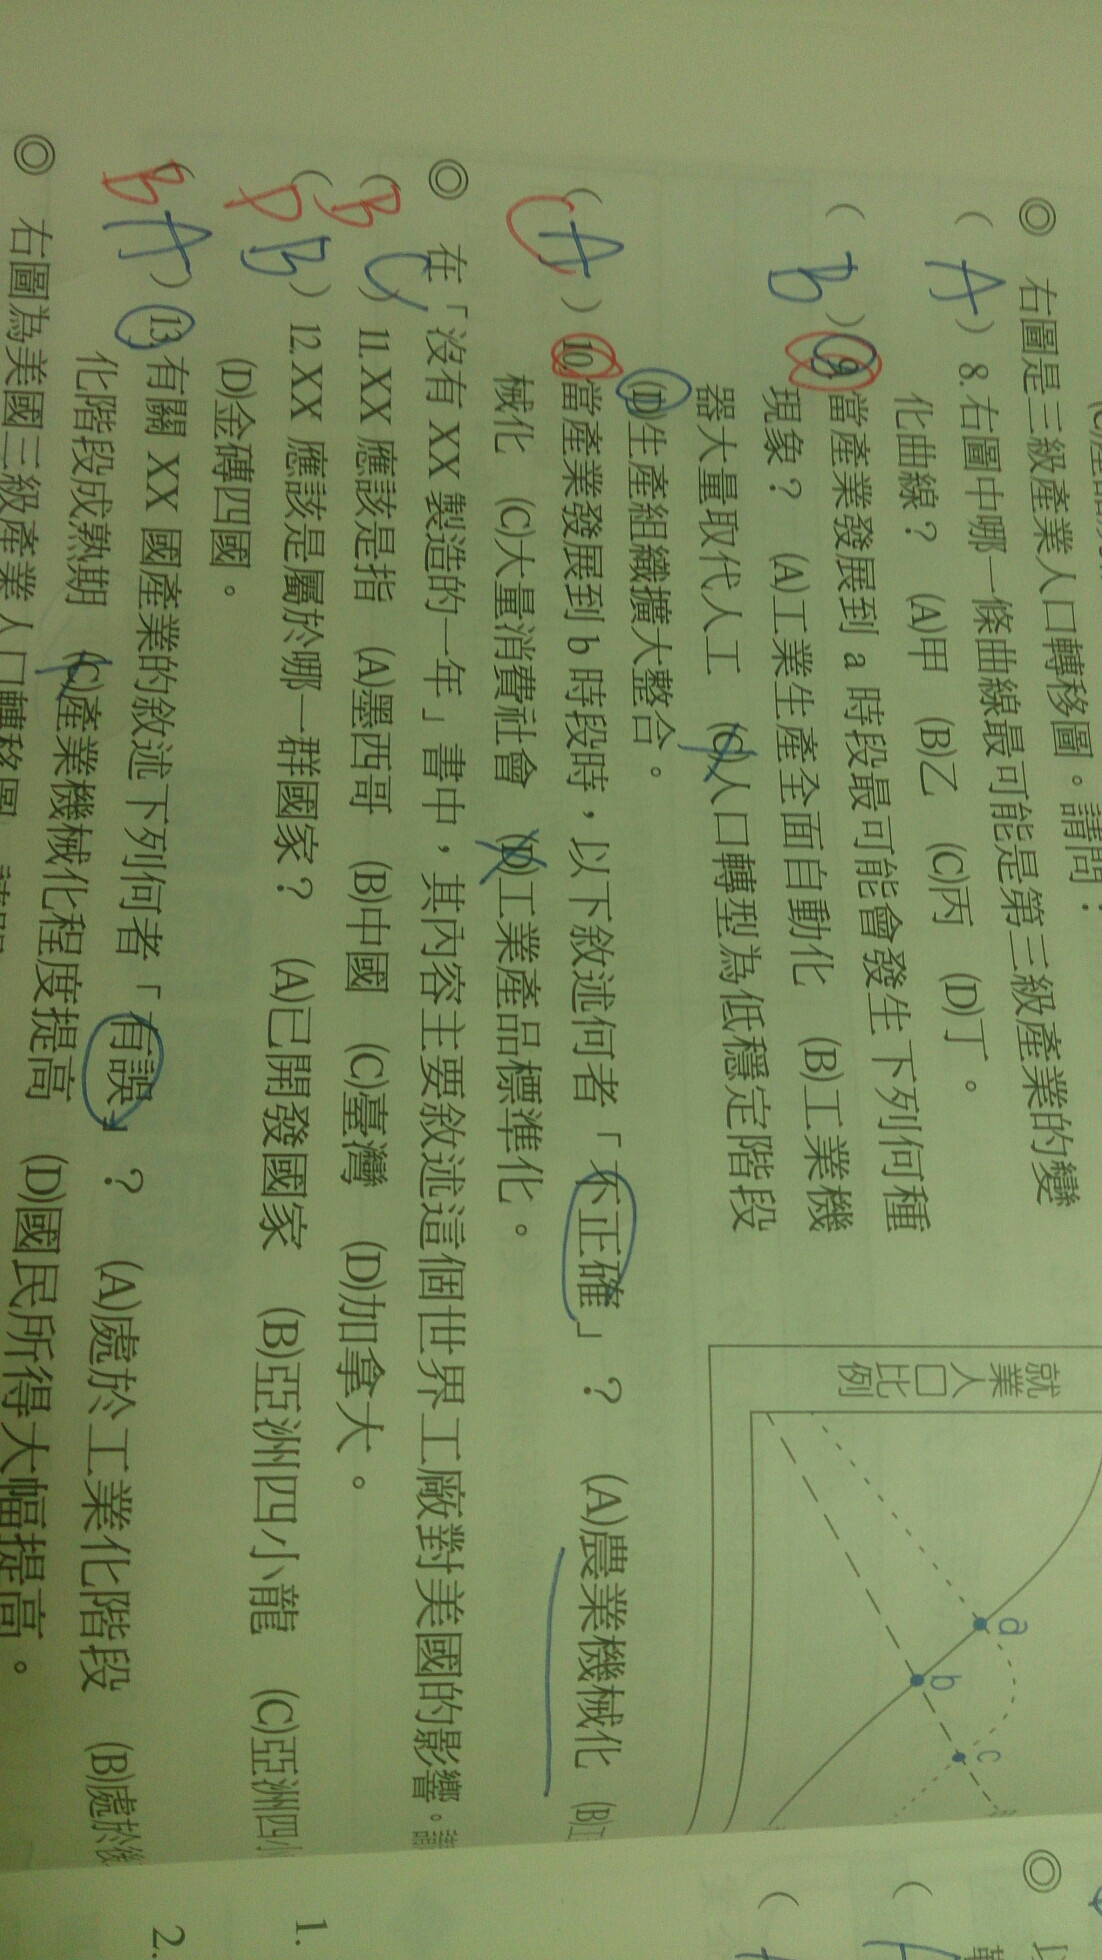 ◎ 右圖是三級產業人口轉移圖。請問：
( A ) 8.右圖中哪一條曲線最可能是第三級產業的變
化曲線？ (A)甲 (B)乙 (C)丙 (D)丁。
( B ) 9.當產業發展到 a 時段最可能會發生下列何種
現象？ (A)工業生產全面自動化 (B)工業機
器大量取代人工 (C)人口轉型為低穩定階段
(D)生產組織擴大整合。
( C A ) 10.當產業發展到 b 時段時，以下敘述何者「不正確」？ (A)農業機械化 (B)工
械化 (C)大量消費社會 (D)工業產品標準化。
就業人口比例
a
b
c
◎ 在「沒有 XX 製造的一年」書中，其內容主要敘述這個世界工廠對美國的影響。
( B C ) 11.XX 應該是指 (A)墨西哥 (B)中國 (C)臺灣 (D)加拿大。
( D B ) 12.XX 應該是屬於哪一群國家？ (A)已開發國家 (B)亞洲四小龍 (C)亞洲四小
(D)金磚四國。
( B A ) 13.有關 XX 國產業的敘述下列何者「有誤」？ (A)處於工業化階段 (B)處於後
化階段成熟期 (C)產業機械化程度提高 (D)國民所得大幅提高。
◎ 右圖為美國三級產業人口轉移圖
◎
1.
2.